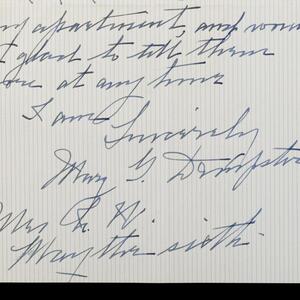 my apartment, and would
glad to tell them
at any time
I am
Sincerely
Mary G. Dempster
Mrs
May the sixth.